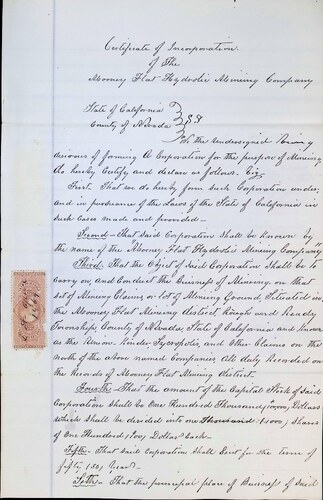 Certificate of Incorporation
of The
Mooney Flat Hydrolic Mineing Company
State of California
County of Nevada } SS
We the undersigned being
desirous of forming A Corporation for the purpose of Mineing
do hereby Certify and declare as follows. Viz
First. That we do hereby form such Corporation under,
and in pursuance of the laws of the State of California in
such cases made and provided—
Second— That said Corporation shall be known by
the name of the Mooney Flat Hydrolic Mineing Company
Third. That the Object of Said Corporation Shall be to
Carry on, and Conduct the Buisness of Mineing on that
Set of Mineing Claims or lot of Mineing Ground, Situated in
the Mooney Flat Mineing district, Rough and Ready
Township, County of Nevada, State of California and Known
as the Union, and Other Claims on the
north of the above named Companies, All duly Recorded on
the Records of Mooney Flat Mineing district.
Fourth— That the amount of the Capital Stock of Said
Corporation Shall be One Hundred Thousand Dollars
Which Shall be devided into one Thousand (1,000) Shares
of One Hundred (100) Dollars Each—
Fifth— That Said Corporation Shall Exist for the term of
fifty (50) Years—
Sixth— That the principal place of Buisness of Said